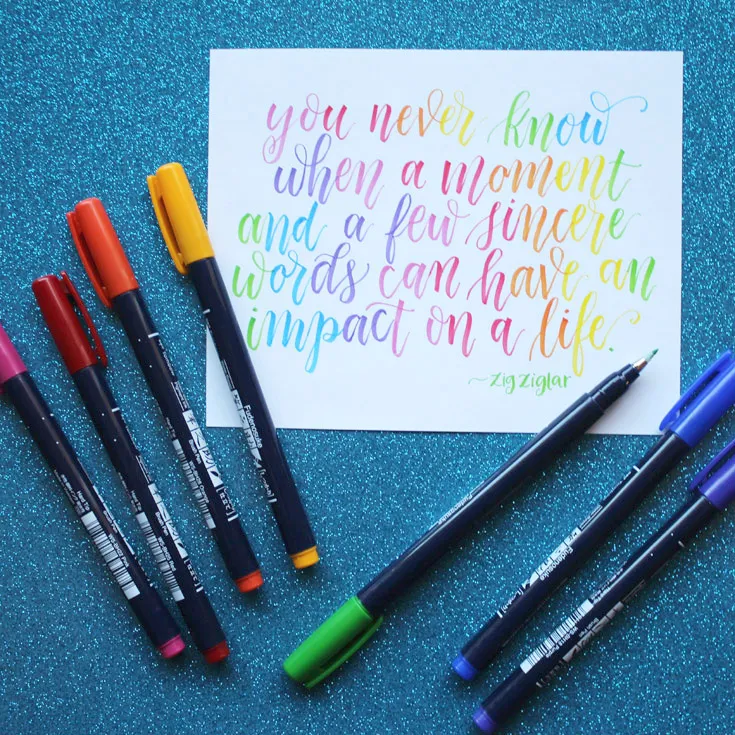 you never know
when a moment
and a few sincere
words can have an
impact on a life.
~Zig Ziglar
Fudenosuke